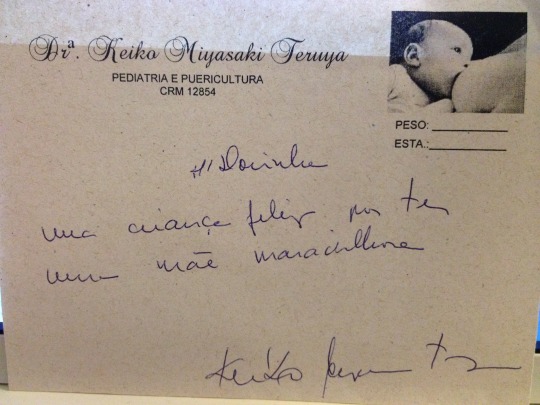 Drª. Keiko Miyasaki Teruya
PEDIATRIA E PUERICULTURA
CRM 12854
PESO:
ESTA.:
uma criança feliz por ter
uma mãe maravilhosa
Keiko